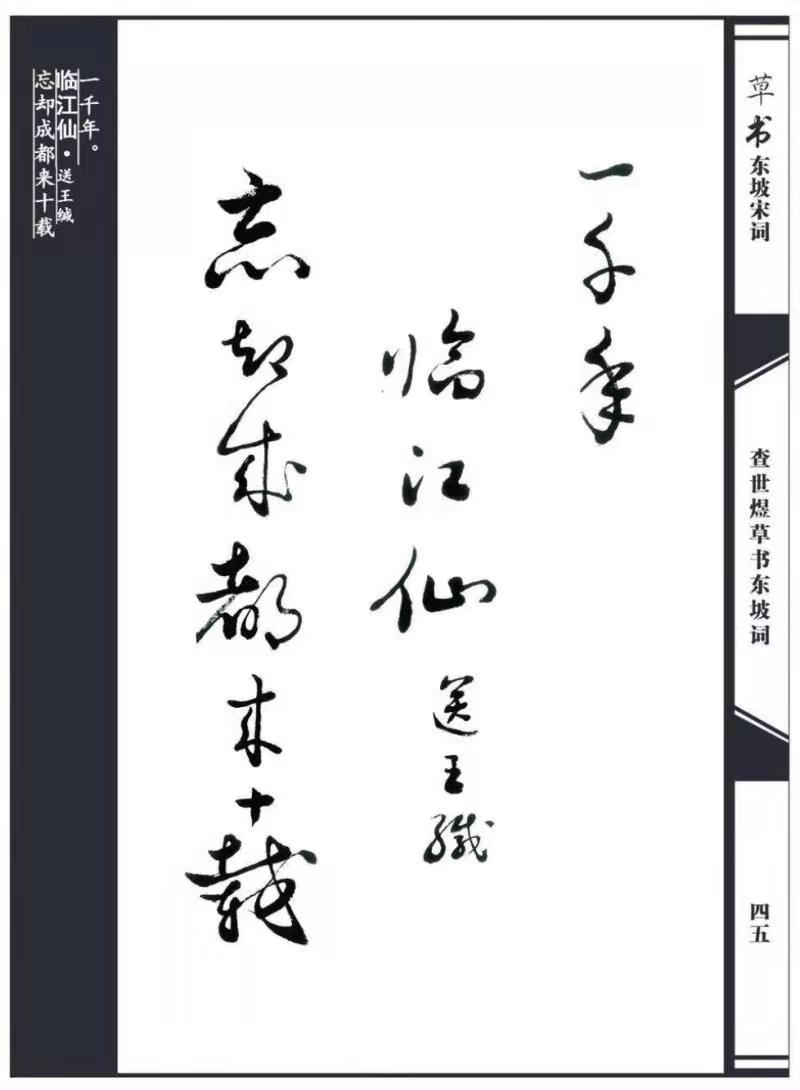 草书东坡宋词
查世煜草书东坡词
四五
一千年
临江仙 送王缄
忘却成都来十载
一千年。
临江仙·送王缄
忘却成都来十载